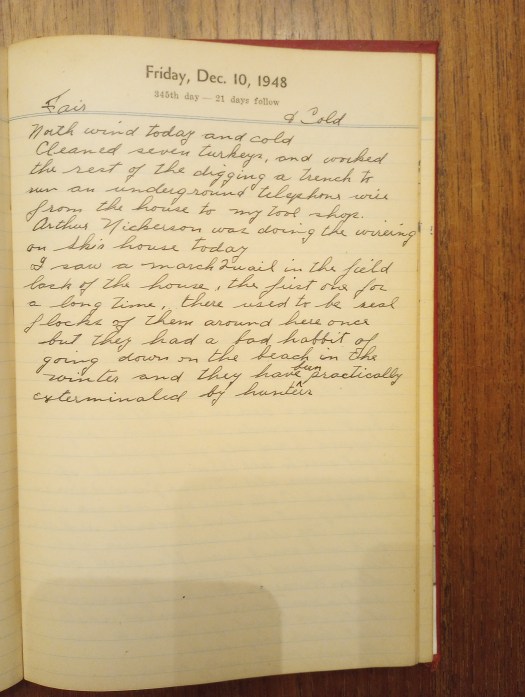 Friday, Dec. 10, 1948
345th day — 21 days follow
Fair & Cold
North wind today and cold
Cleaned seven turkeys, and worked
the rest of the digging a trench to
run an underground telephone wire
from the house to my tool shop.
Arthur Nickerson was doing the wireing
on this house today
I saw a march Quail in the field
back of the house, the first one for
a long time, there used to be real
flocks of them around here once
but they had a bad habbit of
going down on the beach in the
winter and they have been practically
exterminated by hunters